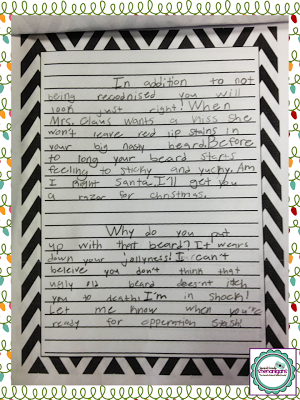 In addition to not
being recognised you will
look just right! When
Mrs. Claus wants a kiss she
won't leave red lip stains in
your big nasty beard. Before
to long your beard starts
feeling to sticky and yucky. Am
I right Santa. I'll get you
a razor for christmas.
Why do you put
up with that beard? It wears
down your jollyness! I can't
beleive you don't think that
ugly old beard doesn't itch
you to death! I'm in shock!
Let me know when you're
ready for opperation Stash!
Shenanigans